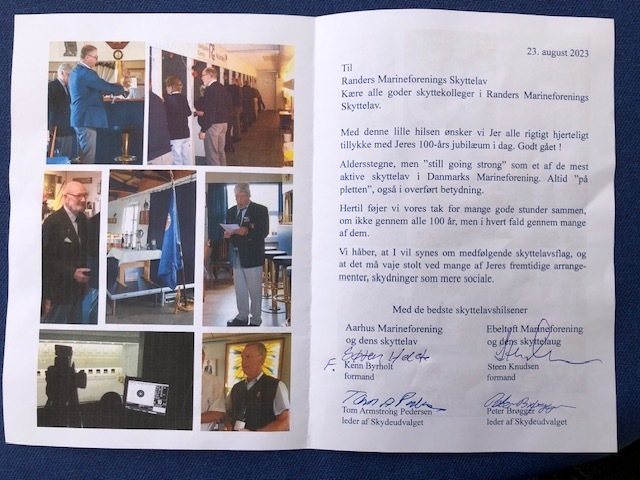 23. august 2023
Til
Randers Marineforenings Skyttelav
Kære alle goder skyttekolleger i Randers Marineforenings
Skyttelav.
Med denne lille hilsen ønsker vi Jer alle rigtigt hjerteligt
tillykke med Jeres 100-års jubilæum i dag. Godt gået !
Alderstegne, men ”still going strong” som et af de mest
aktive skyttelav i Danmarks Marineforening. Altid ”på
pletten”, også i overført betydning.
Hertil føjer vi vores tak for mange gode stunder sammen,
om ikke gennem alle 100 år, men i hvert fald gennem mange
af dem.
Vi håber, at I vil synes om medfølgende skyttelavsflag, og
at det må vaje stolt ved mange af Jeres fremtidige arrange-
menter, skydninger som mere sociale.
Med de bedste skyttelavshilsener
Aarhus Marineforening Ebeltoft Marineforening
og dens skyttelav og dens skyttelaug
F.
Kenn Byrholt Steen Knudsen
formand formand
Tom Armstrong Pedersen Peter Brøgger
leder af Skydeudvalget leder af Skydeudvalget